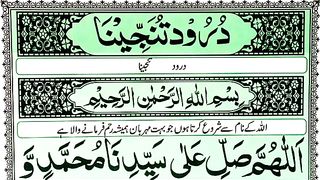 دُرُود تُنَجِّينَا
درود تنجینا
بِسْمِ اللهِ الرَّحْمٰنِ الرَّحِيْمِ
اللہ کے نام سے شروع کرتا ہوں جو بہت مہربان ہمیشہ رحم فرمانے والا ہے
اَللّٰهُمَّ صَلِّ عَلٰى سَيِّدِنَا مُحَمَّدٍ وَّ